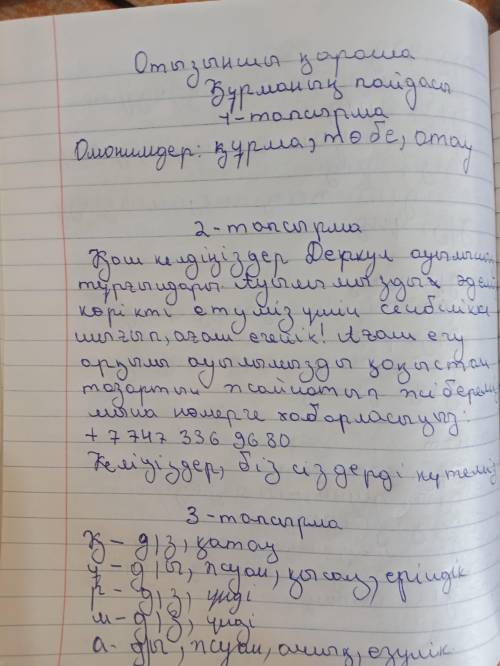 Отызыншы қараша
Құрманың пайдасы
1-тапсырма
Омонимдер: құрма, төбе, атау
2-тапсырма
Қош келдіңіздер Деркул ауылының
тұрғындары. Ауылымыздың әдемі
көрікті етуміз үшін сенбілікке
шығып, ағаш егейік! Ағаш егу
арқылы ауылымызды қоқыстан
тазартып жайнатып жіберейік
мына номерге хабарласыңыз:
+7 747 336 96 80
Келіңіздер, біз сіздерді күтеміз
3-тапсырма
Қ - д/з, қатаң
ұ - д/ы, жуан, қысаң, еріндік
р - д/з, үнді
м - д/з, үнді
а - д/ы, жуан, ашық, езулік